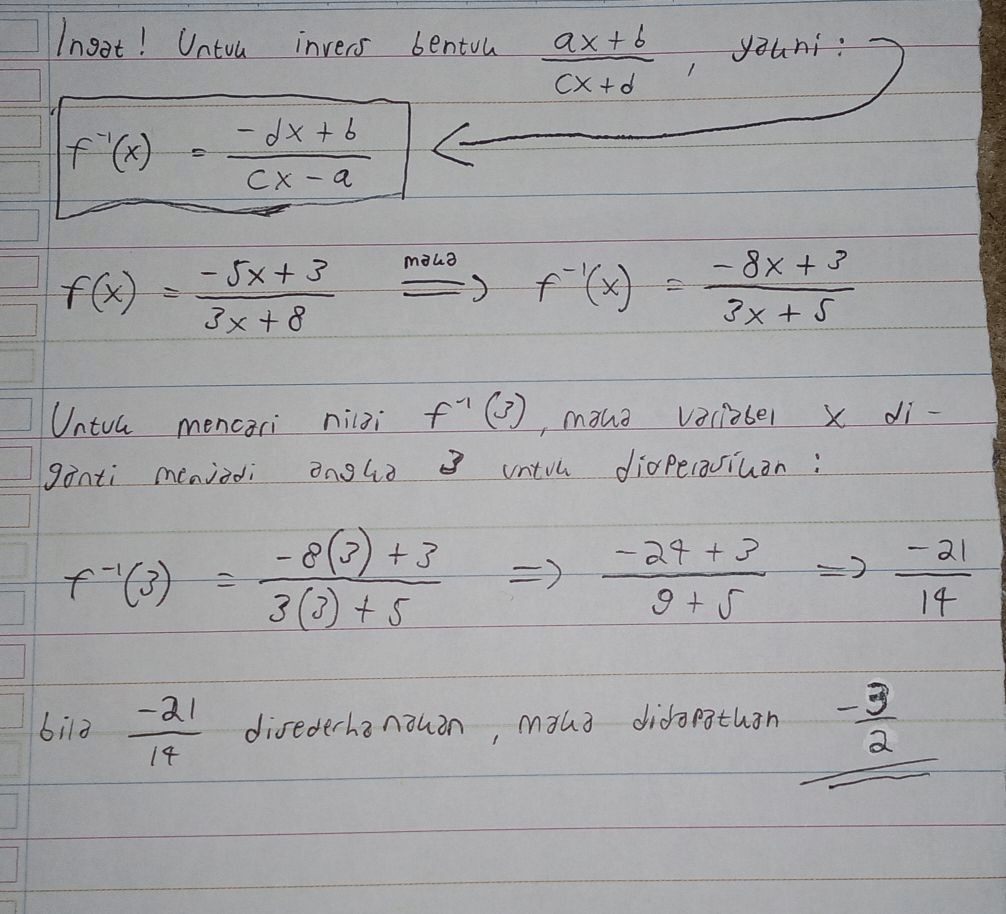 Ingat! Untuk invers bentuk (ax+b)/(cx+d), yakni:
f⁻¹(x) = (-dx+b)/(cx-a)
f(x) = (-5x+3)/(3x+8) maka => f⁻¹(x) = (-8x+3)/(3x+5)
Untuk mencari nilai f⁻¹(3), maka variabel x di-
ganti menjadi angka 3 untuk dioperasikan:
f⁻¹(3) = (-8(3)+3)/(3(3)+5) => (-24+3)/(9+5) => -21/14
bila -21/14 disederhanakan, maka didapatkan -3/2